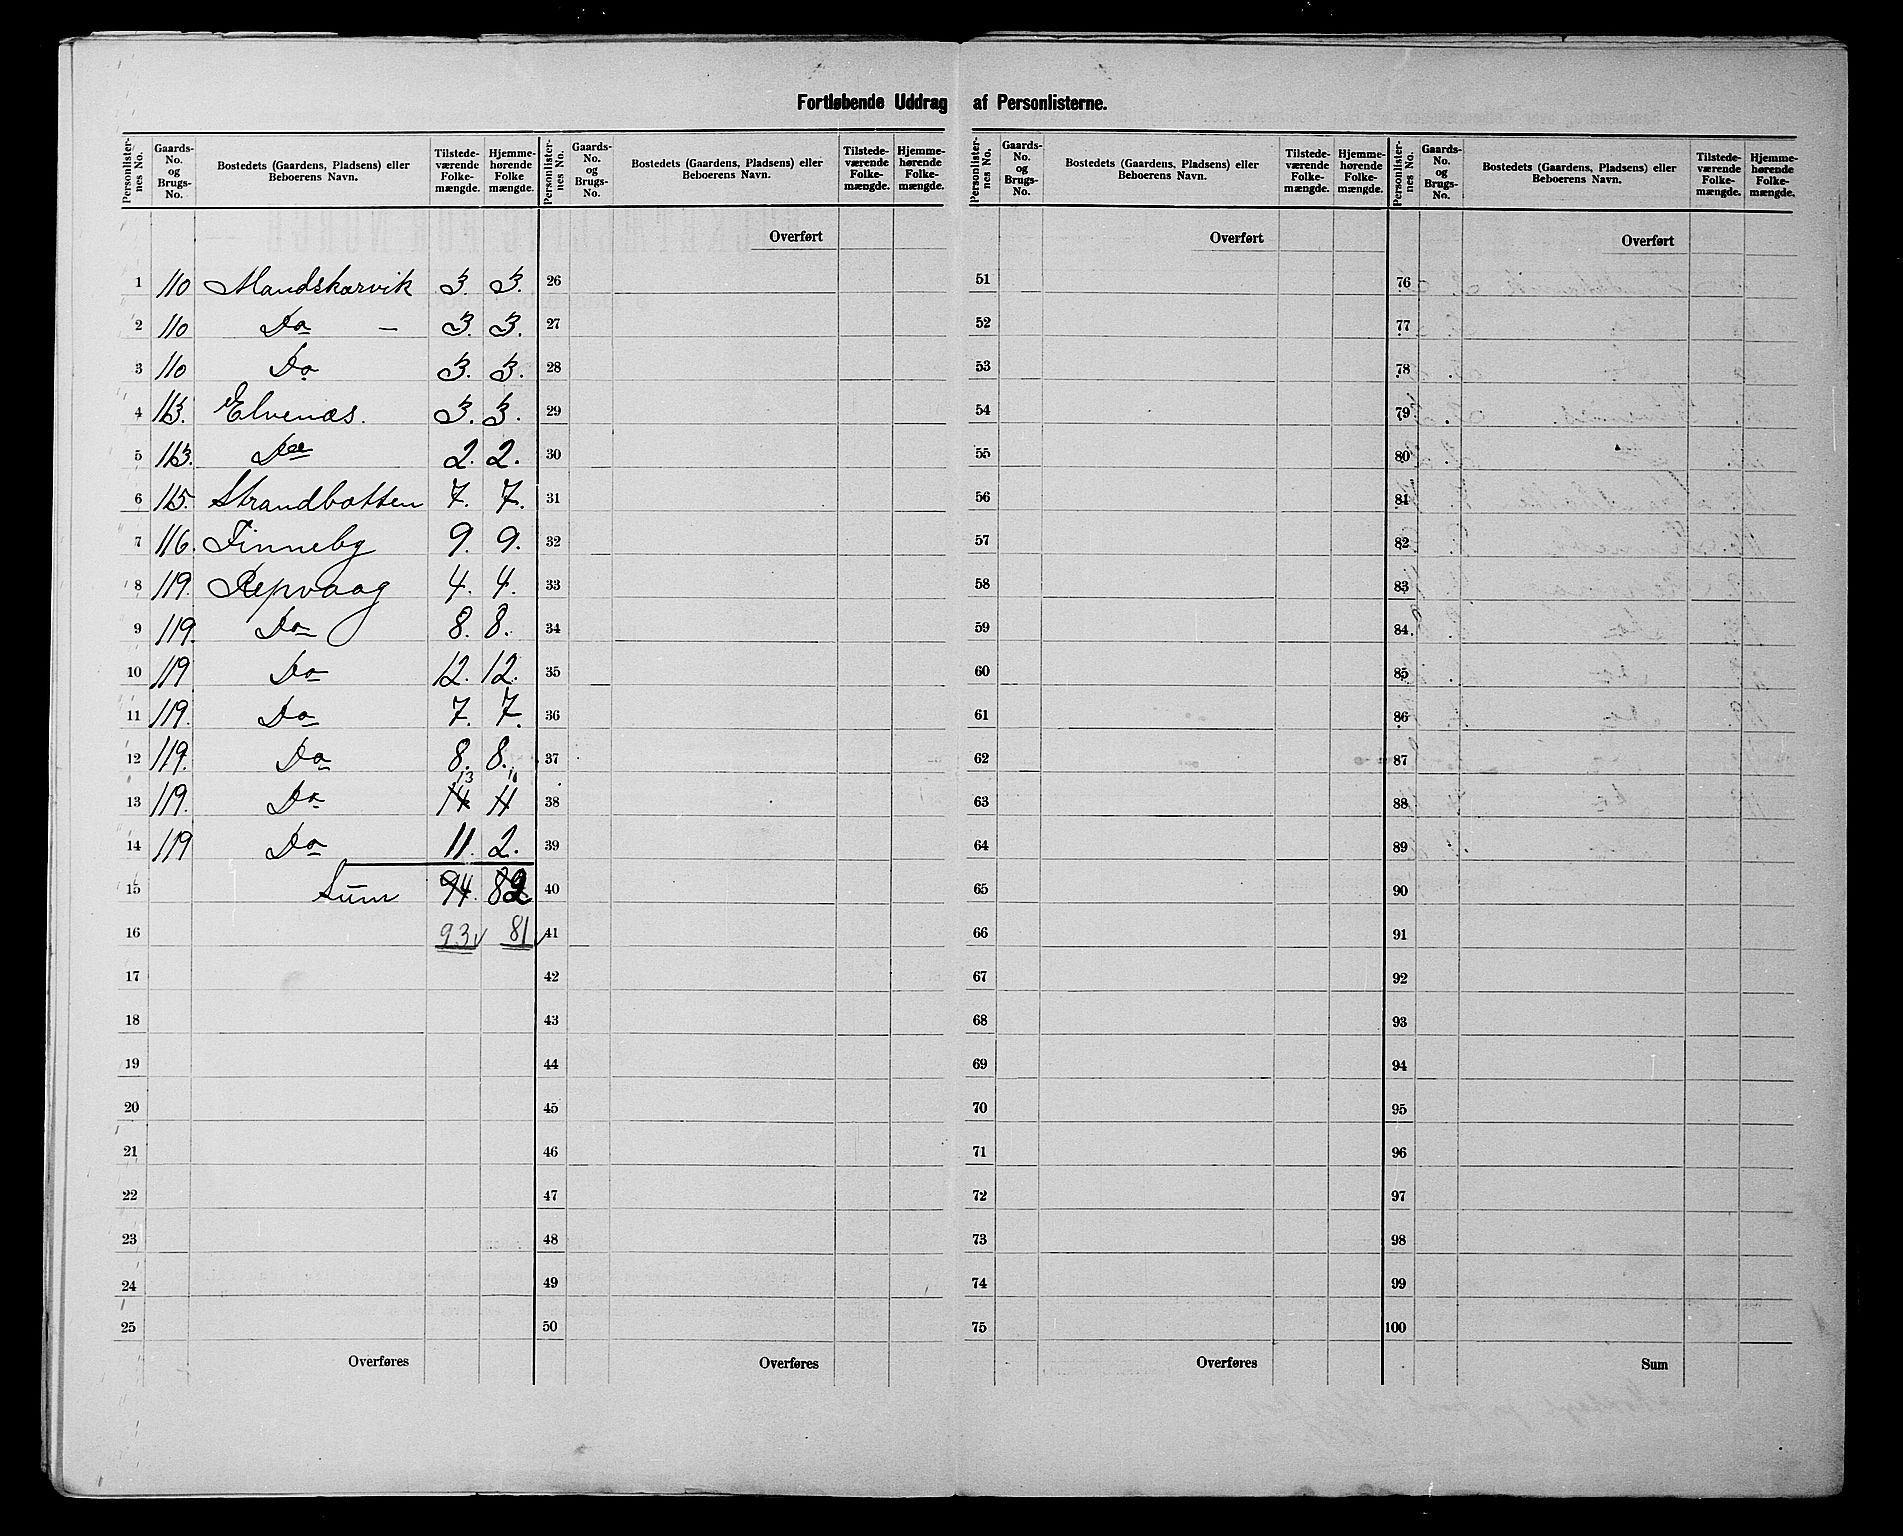 Fortløbende Uddrag af Personlisterne.
Personlisternes No. Gaards-No. og Brugs-No. Bostedets (Gaardens, Pladsens) eller Beboerens Navn. Tilstedeværende Folkemængde. Hjemmehørende Folkemængde.
1 110 Mandskarvik 3. 3.
2 110 Do — 3. 3.
3 110 Do 3. 3.
4 113. Elvenæs. 3. 3.
5 113. Do 2. 2.
6 115. Strandbotten 7. 7.
7 116. Finneby 9. 9.
8 119. Repvaag 4. 4.
9 119. Do 8. 8.
10 119 Do 12. 12.
11 119. Do 7. 7.
12 119. Do 8. 8.
13
13 119. Do 14 11
14 119 Do 11. 2.
15 Sum 94. 82
16 93 81
17
18
19
20
21
22
23
24
25
Overføres
Personlisternes No. Gaards-No. og Brugs-No. Bostedets (Gaardens, Pladsens) eller Beboerens Navn. Tilstedeværende Folkemængde. Hjemmehørende Folkemængde.
Overført
26
27
28
29
30
31
32
33
34
35
36
37
38
39
40
41
42
43
44
45
46
47
48
49
50
Overføres
Personlisternes No. Gaards-No. og Brugs-No. Bostedets (Gaardens, Pladsens) eller Beboerens Navn. Tilstedeværende Folkemængde. Hjemmehørende Folkemængde.
Overført
51
52
53
54
55
56
57
58
59
60
61
62
63
64
65
66
67
68
69
70
71
72
73
74
75
Overføres
Personlisternes No. Gaards-No. og Brugs-No. Bostedets (Gaardens, Pladsens) eller Beboerens Navn. Tilstedeværende Folkemængde. Hjemmehørende Folkemængde.
Overført
76
77
78
79
80
81
82
83
84
85
86
87
88
89
90
91
92
93
94
95
96
97
98
99
100
Sum